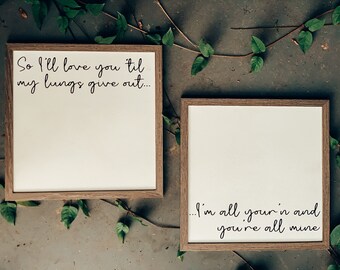 So I'll love you 'til
my lungs give out...
...I'm all your'n and
you're all mine